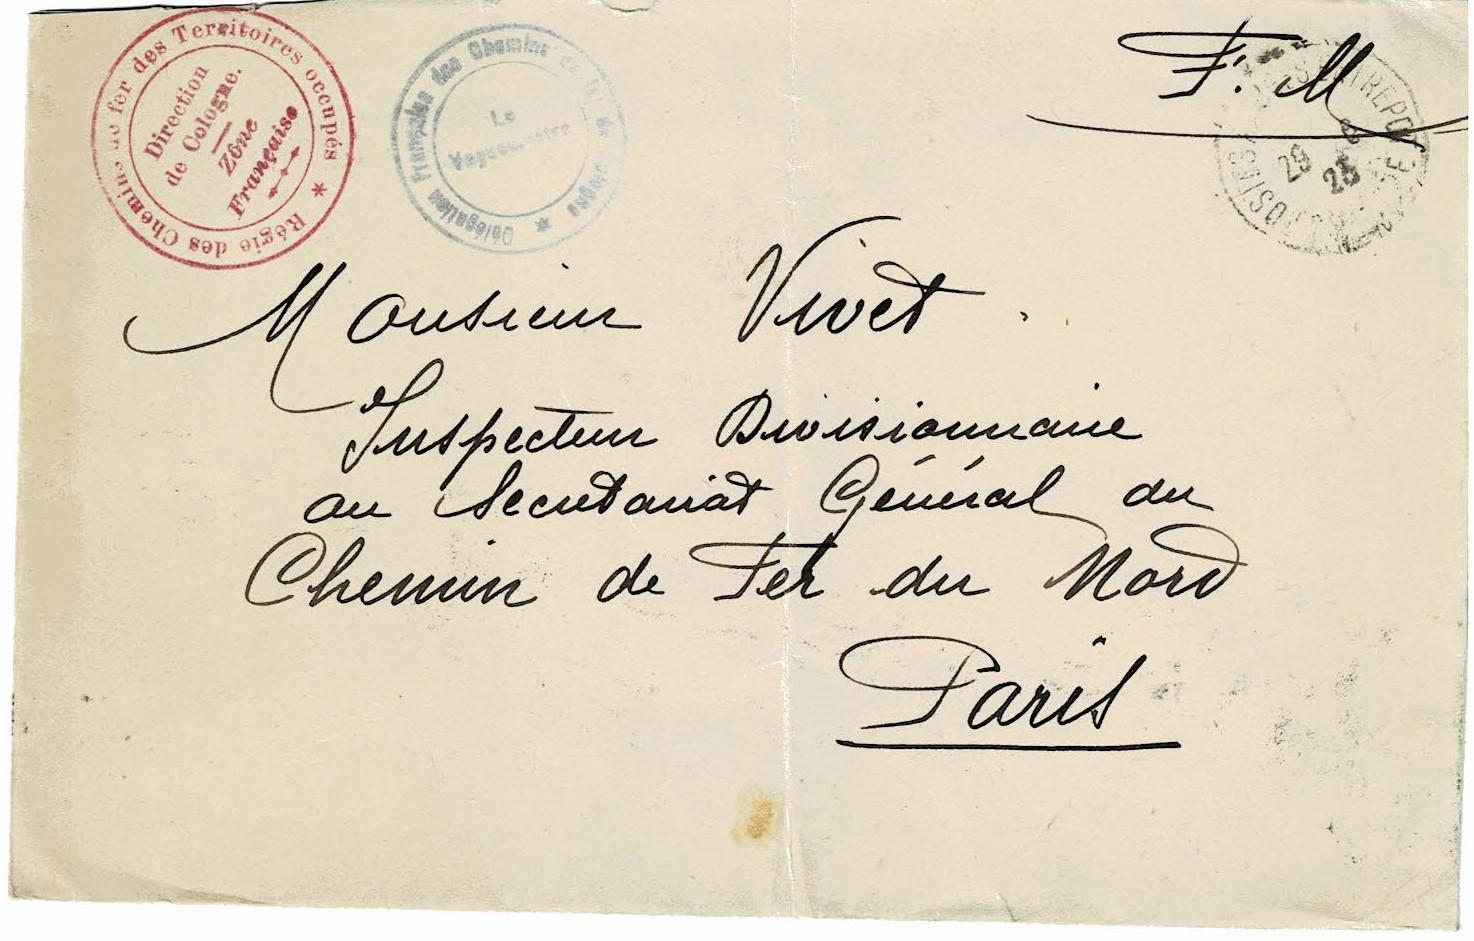 Régie des Chemins de fer des Territoires occupés *
Direction
de Cologne.
Zône
Française
Délégation Française des Chemins de fer de Cologne *
Le
F. M
29
23
Monsieur Vivet
Inspecteur Divisionnaire
au Secretariat Général du
Chemin de Fer du Nord
Paris